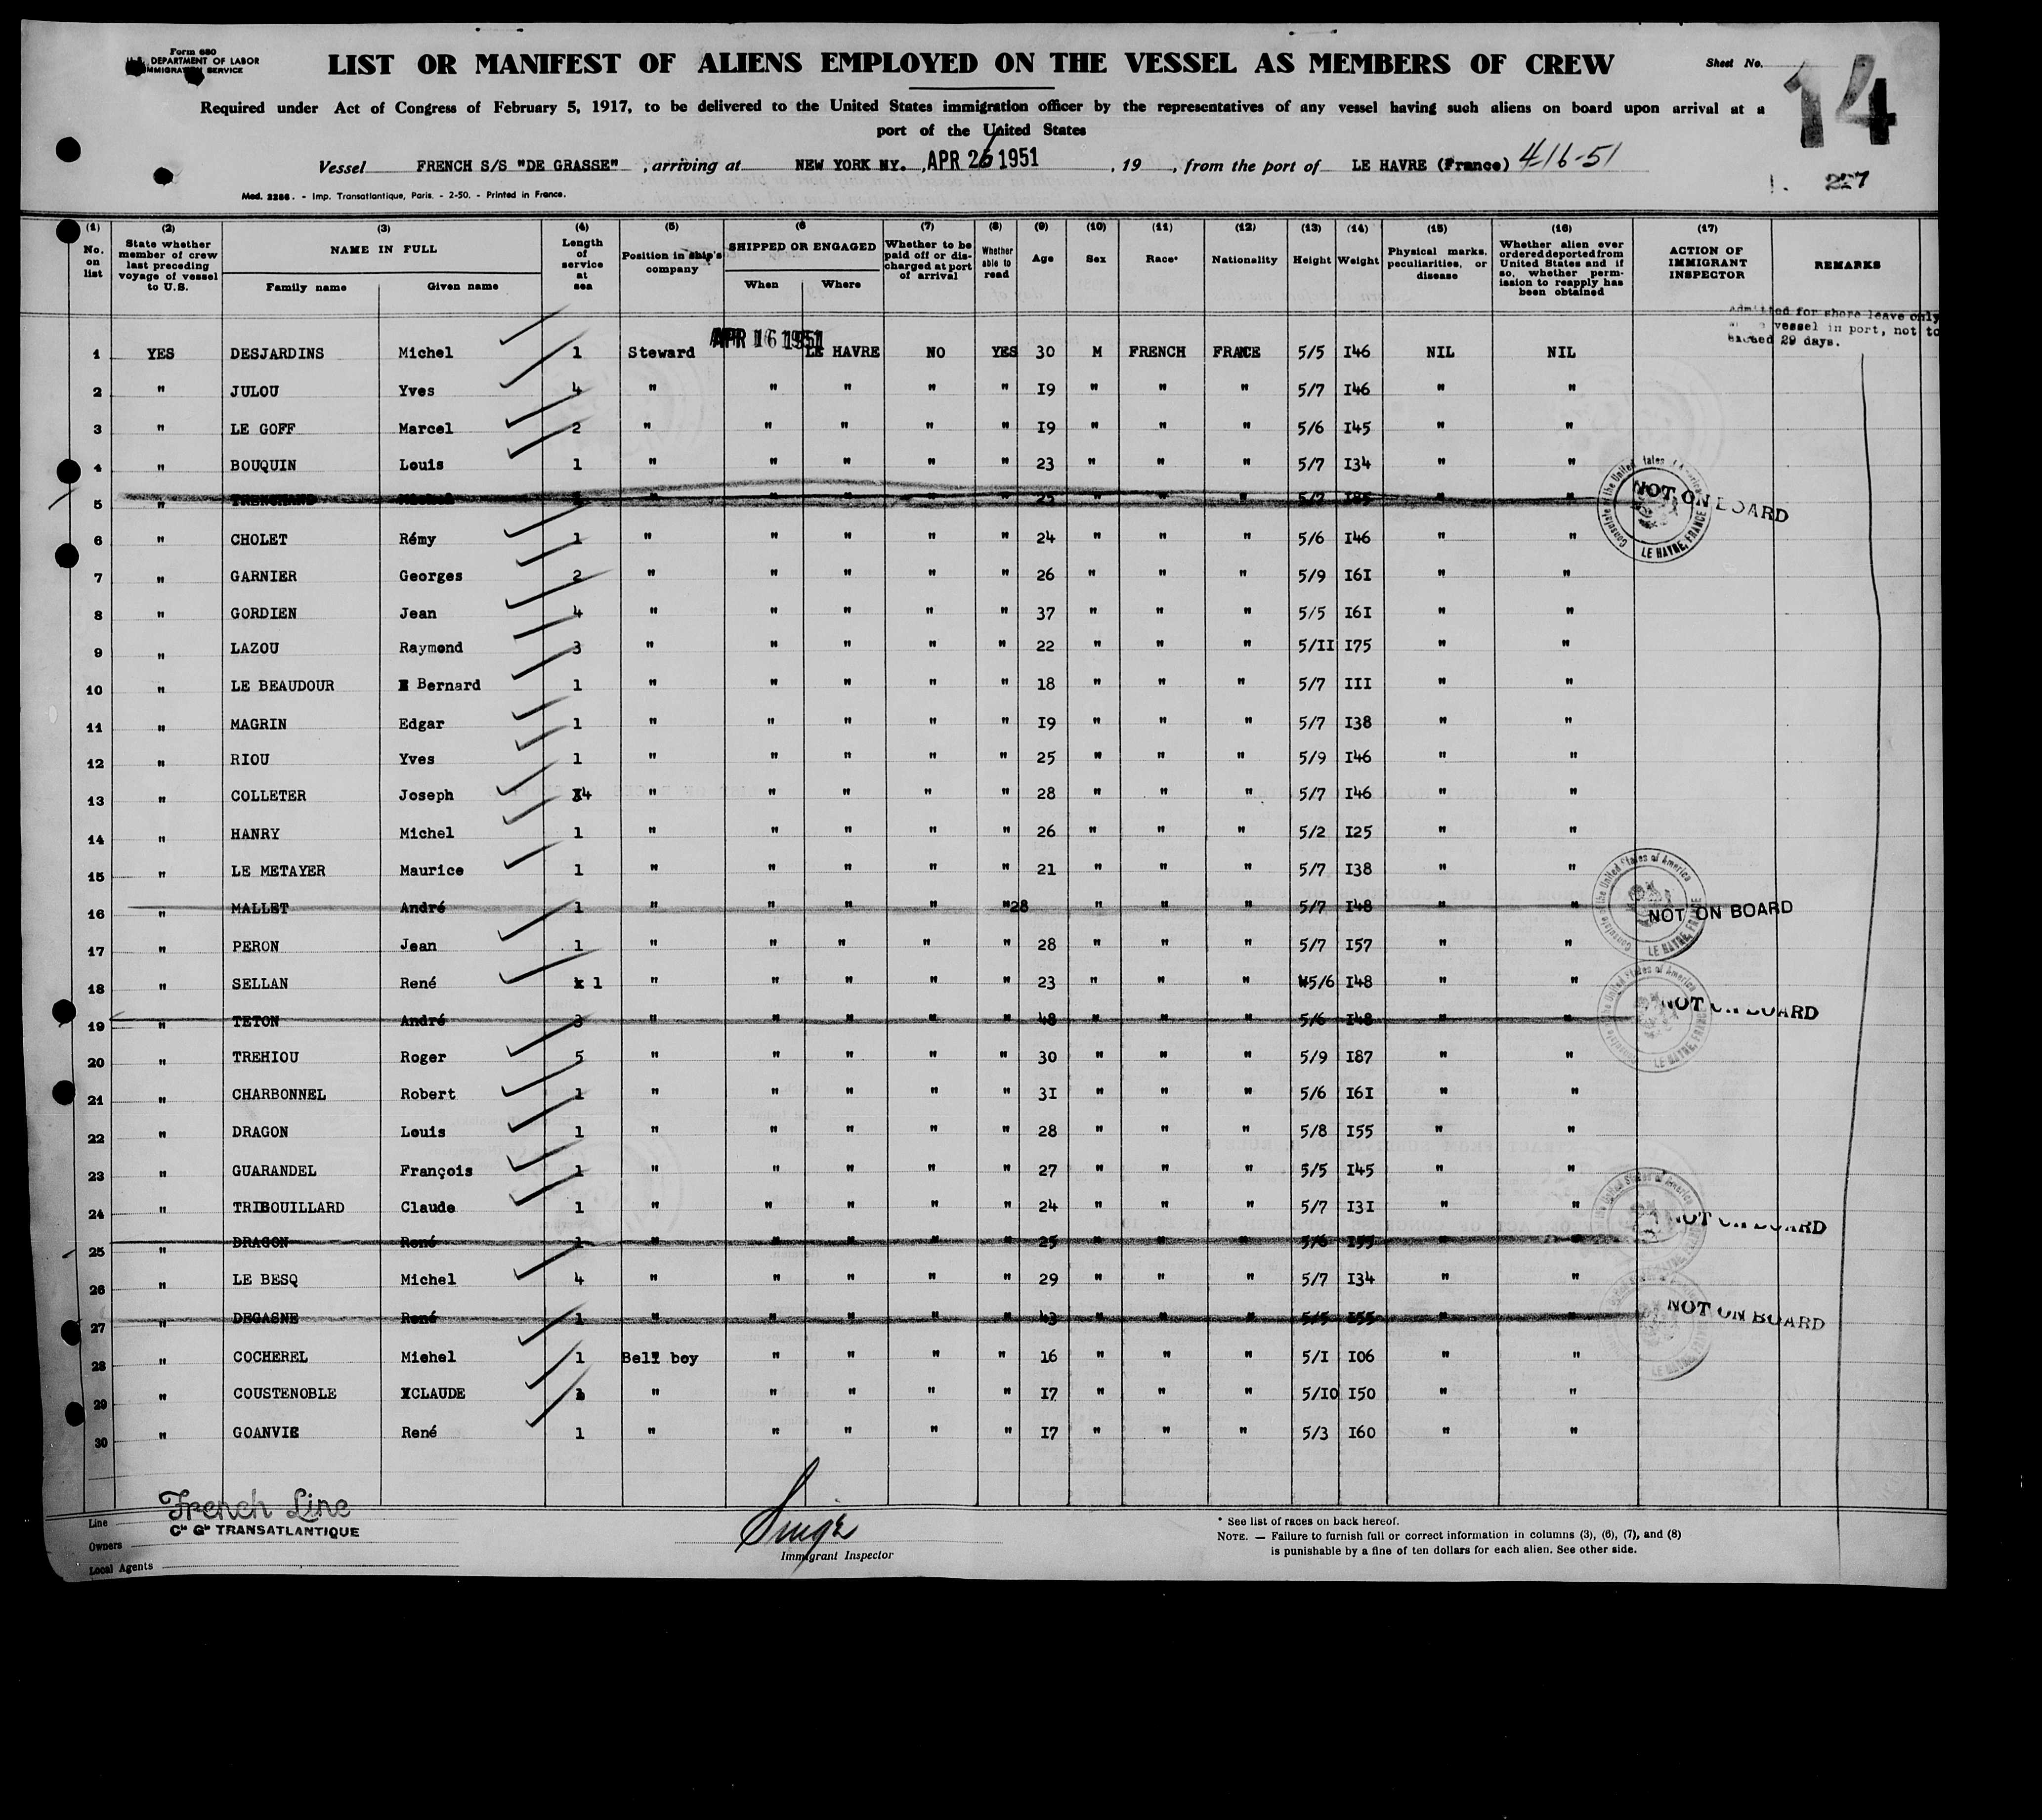 Form 680
U.S. DEPARTMENT OF LABOR
IMMIGRATION SERVICE
LIST OR MANIFEST OF ALIENS EMPLOYED ON THE VESSEL AS MEMBERS OF CREW
Sheet No. 14
Required under Act of Congress of February 5, 1917, to be delivered to the United States immigration officer by the representatives of any vessel having such aliens on board upon arrival at a
port of the United States
Vessel FRENCH S/S "DE GRASSE" , arriving at NEW YORK NY. , APR 26 1951 , 19 , from the port of LE HAVRE (France) 4-16-51
Mod. 2288. - Imp. Transatlantique, Paris. - 2-50. - Printed in France.
227
(1) (2) (3) (4) (5) (6 (7) (8) (9) (10) (11) (12) (13) (14) (15) (16) (17)
No. on list
State whether member of crew last preceding voyage of vessel to U.S.
NAME IN FULL
Family name Given name
Length of service at sea
Position in ship's company
SHIPPED OR ENGAGED
When Where
Whether to be paid off or discharged at port of arrival
Whether able to read
Age
Sex
Race*
Nationality
Height
Weight
Physical marks, peculiarities, or disease
Whether alien ever ordered deported from United States and if so, whether permission to reapply has been obtained
ACTION OF IMMIGRANT INSPECTOR
REMARKS
Admitted for shore leave only
vessel in port, not to
exceed 29 days.
APR 16 1951
1 YES DESJARDINS Michel 1 Steward LE HAVRE NO YES 30 M FRENCH FRANCE 5/5 I46 NIL NIL
2 " JULOU Yves 4 " " " " " I9 " " " 5/7 I46 " "
3 " LE GOFF Marcel 2 " " " " " I9 " " " 5/6 I45 " "
4 " BOUQUIN Louis 1 " " " " " 23 " " " 5/7 I34 " "
5 " TRENCHAND Michel " " " " " " " " 5/7 " " NOT ON BOARD
6 " CHOLET Rémy 1 " " " " " 24 " " " 5/6 I46 " "
7 " GARNIER Georges 2 " " " " " 26 " " " 5/9 I6I " "
8 " GORDIEN Jean 4 " " " " " 37 " " " 5/5 I6I " "
9 " LAZOU Raymond 3 " " " " " 22 " " " 5/II I75 " "
10 " LE BEAUDOUR Bernard 1 " " " " " 18 " " " 5/7 III " "
11 " MAGRIN Edgar 1 " " " " " I9 " " " 5/7 I38 " "
12 " RIOU Yves 1 " " " " " 25 " " " 5/9 I46 " "
13 " COLLETER Joseph 4 " " " " " 28 " " " 5/7 I46 " "
14 " HANRY Michel 1 " " " " " 26 " " " 5/2 I25 " "
15 " LE METAYER Maurice 1 " " " " " 21 " " " 5/7 I38 " "
16 " MALLET André 1 " " " " " 28 " " " 5/7 I48 " " NOT ON BOARD
17 " PERON Jean 1 " " " " " 28 " " " 5/7 I57 " "
18 " SELLAN René 1 " " " " " 23 " " " 5/6 I48 " "
19 " TETON André 3 " " " " " 48 " " " 5/6 I48 " " NOT ON BOARD
20 " TREHIOU Roger 5 " " " " " 30 " " " 5/9 I87 " "
21 " CHARBONNEL Robert 1 " " " " " 3I " " " 5/6 I6I " "
22 " DRAGON Louis 1 " " " " " 28 " " " 5/8 I55 " "
23 " GUARANDEL François 1 " " " " " 27 " " " 5/5 I45 " "
24 " TRIBOUILLARD Claude 1 " " " " " 24 " " " 5/7 I3I " "
25 " DRAGON René 1 " " " " " 25 " " " 5/6 I55 " " NOT ON BOARD
26 " LE BESQ Michel 4 " " " " " 29 " " " 5/7 I34 " "
27 " DEGASNE René 1 " " " " " 43 " " " 5/5 I55 " " NOT ON BOARD
28 " COCHEREL Michel 1 Bell boy " " " " 16 " " " 5/I I06 " "
29 " COUSTENOBLE CLAUDE " " " " " I7 " " " 5/I0 I50 " "
30 " GOANVIE René 1 " " " " " I7 " " " 5/3 I60 " "
Consulate of the United States of America LE HAVRE, FRANCE
Line French Line
Cie Gle TRANSATLANTIQUE
Owners
Local Agents
Immigrant Inspector
* See list of races on back hereof.
NOTE. — Failure to furnish full or correct information in columns (3), (6), (7), and (8)
is punishable by a fine of ten dollars for each alien. See other side.